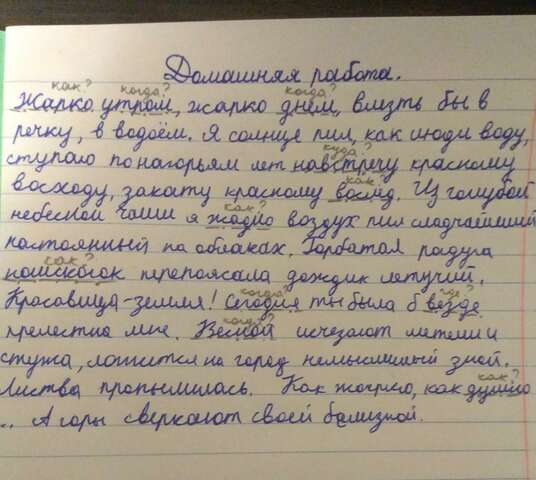 Домашняя работа.
как? когда? когда?
Жарко утром, жарко днём, влезть бы в
речку, в водоём. Я солнце пил, как люди воду,
куда?
ступаю по нагорьям лет навстречу красному
как?
восходу, закату красному вослед. Из голубой
как?
небесной чаши я жадно воздух пил сладчайший
настоянный на облаках. Горбатая радуга
как?
наискосок перепоясала дождик летучий.
когда? где?
Красавица-земля! Сегодня ты была б везде
когда?
прелестна мне. Весной исчезают метели и
стужа, ложится на город немыслимый зной.
как?
Листва пропылилась. Как жарко, как душно
.. А горы сверкают своей белизной.